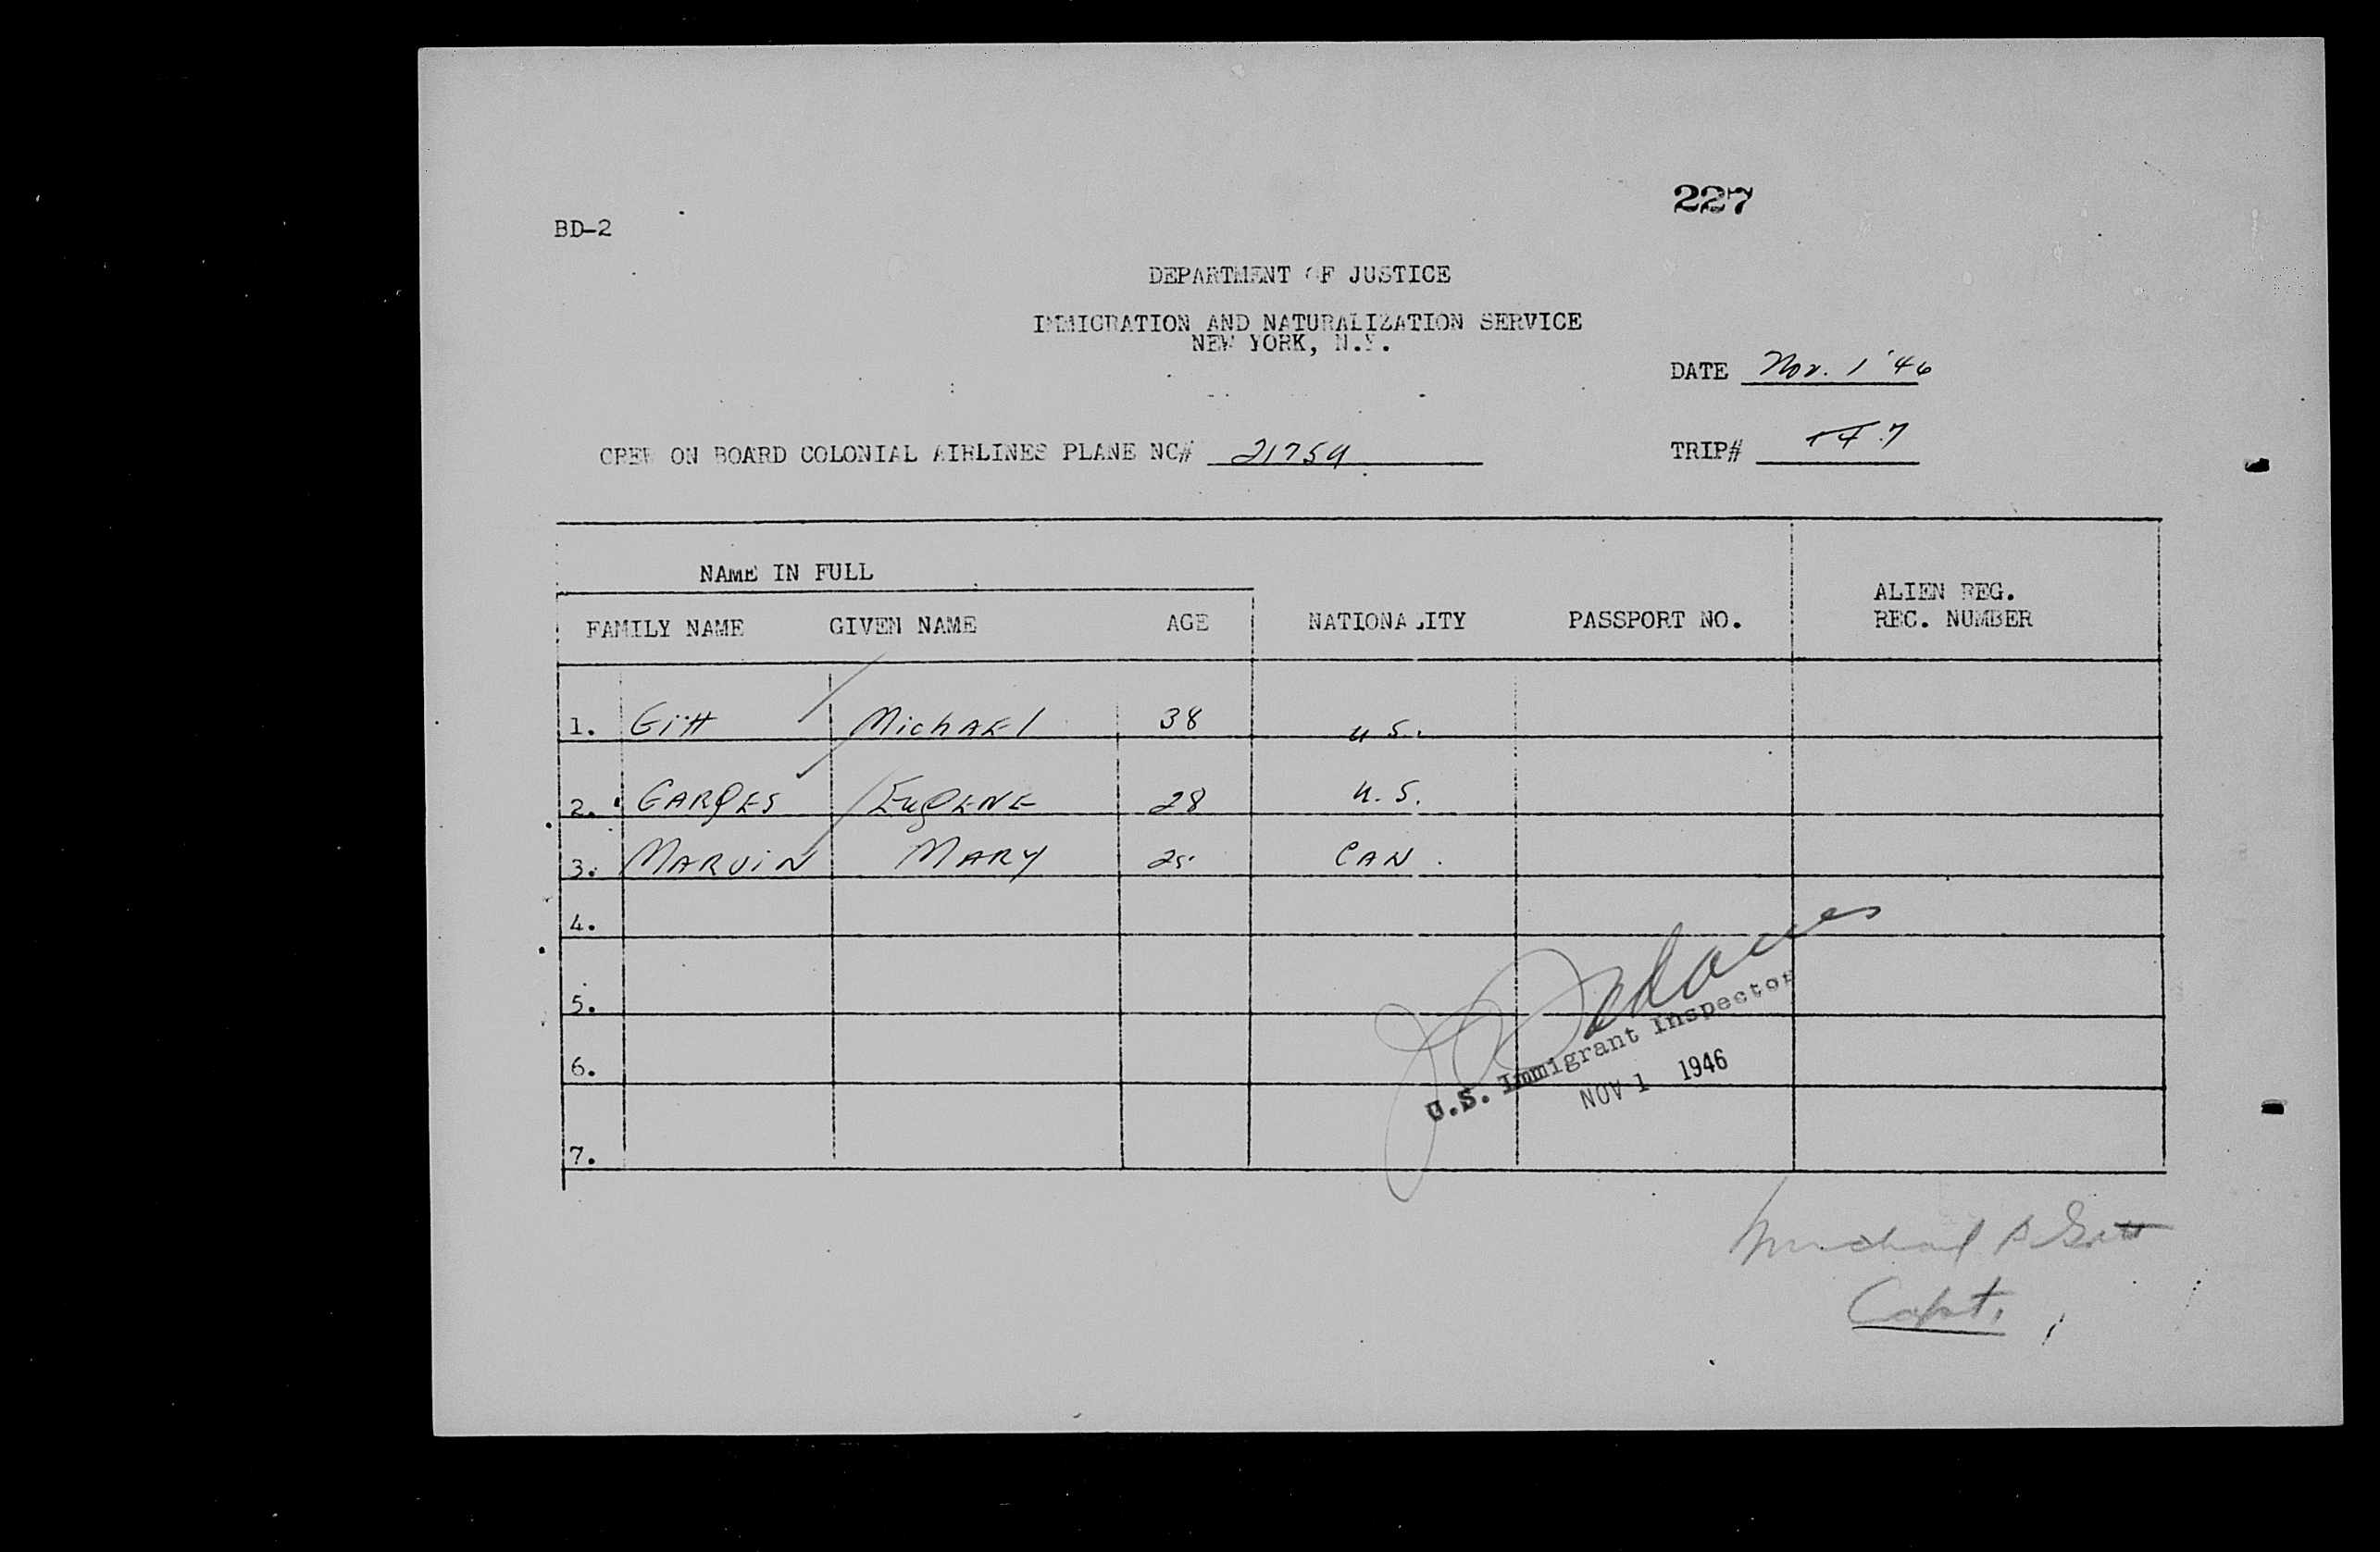 227
BD-2
DEPARTMENT OF JUSTICE
IMMIGRATION AND NATURALIZATION SERVICE
NEW YORK, N.Y.
DATE Nov. 1 '46
CREW ON BOARD COLONIAL AIRLINES PLANE NC# 21759
TRIP# 7
NAME IN FULL
FAMILY NAME GIVEN NAME AGE NATIONALITY PASSPORT NO. ALIEN REG. REC. NUMBER
1. Gitt Michael 38 U.S.
2. GARGES EUGENE 28 U.S.
3. MARVIN MARY 25 CAN.
4.
5.
6.
7.
U.S. Immigrant Inspector
NOV 1 1946
Michael Gitt
Capt.